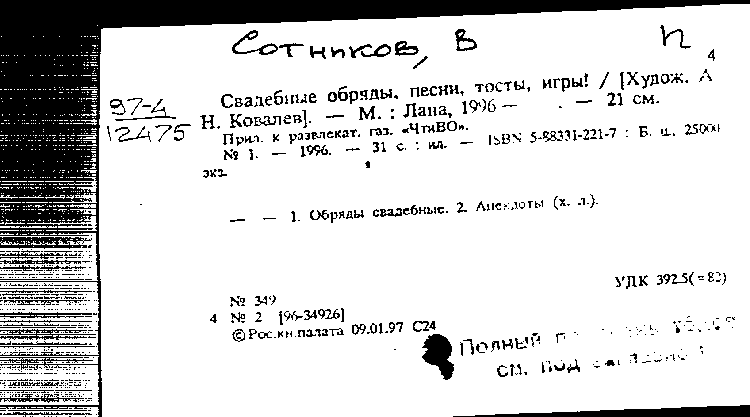 Сотников, В п
4
97-4
12475
Свадебные обряды, песни, тосты, игры! / [Худож. А
Н. Ковалев]. — М. : Лана, 1996 — . — 21 см.
Прил. к развлекат. газ. «ЧтиВО».
№ 1. — 1996. — 31 с. : ил. — ISBN 5-88331-221-7 : Б. ц., 25000
экз.
— — 1. Обряды свадебные. 2. Анекдоты (х. л.).
УДК 392.5(=82)
№ 349
4 № 2 [96-34926]
© Рос.кн.палата 09.01.97 С24
Полный
см. под